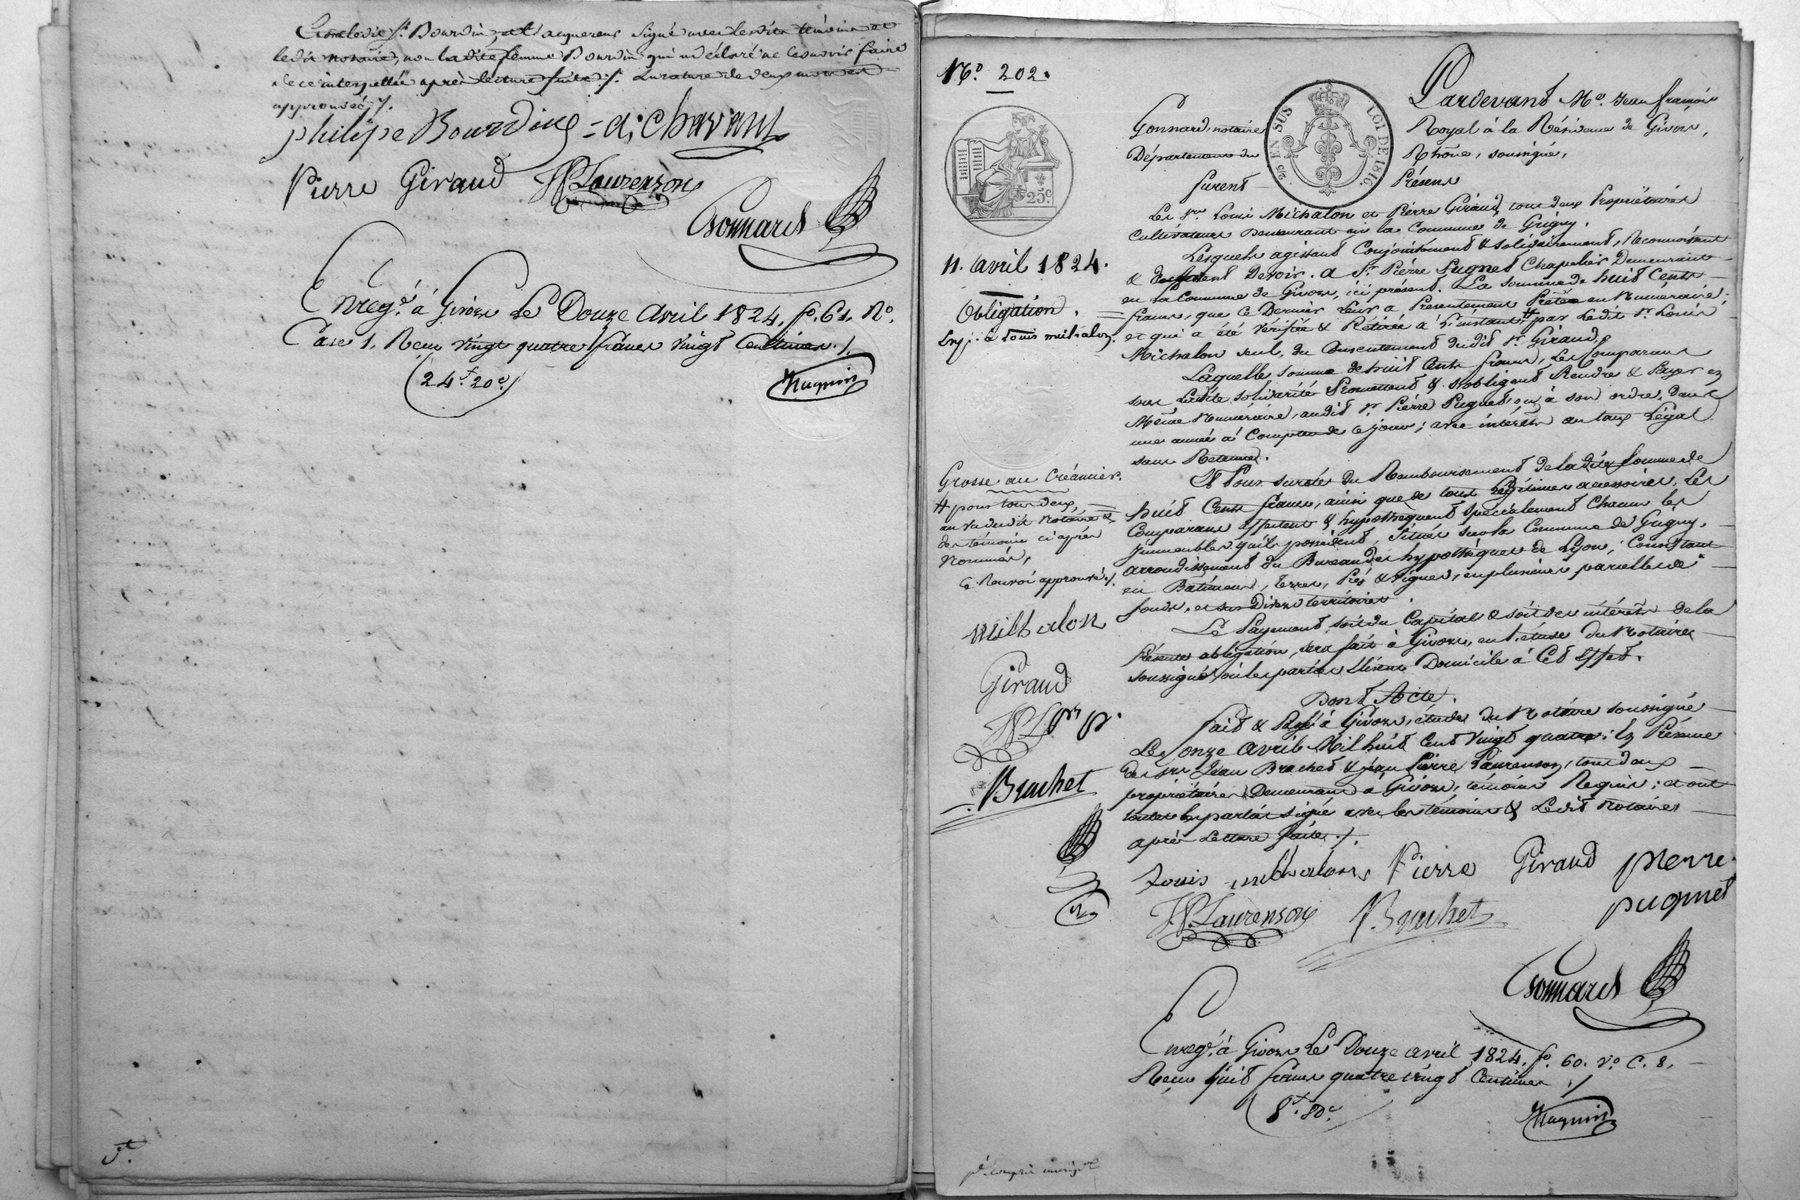 ledit Sr. Bourdin et acquereur signé avec lesdits témoins et
ledit notaire, non ladite femme Bourdin qui a déclaré ne le savoir faire
de ce interpellée après lecture faite ./. La rature de deux mots est
approuvée ./.
philipe Bourdin = di Chavany
Pierre Giraud JPLaurenson
Gonnard
Enregé. à Givors Le Douze Avril 1824, fo. 61, Ro.
Case 1, Reçu vingt quatre francs vingt Centimes ./.
(24f. 20c.)
No. 202.
Pardevant Me. Jean françois
Gonnard, notaire Royal à la Résidence de Givors,
Département du Rhône, soussigné,
EN SUS LOI DE 1816.
25c.
furent Présens
Les srs. Louis Michalon et Pierre Giraud, tous deux Propriétaires
Cultivateurs Demeurant en la Commune de Grigny.
11. avril 1824.
Lesquels agissant Conjointement & solidairement, Reconnoissent
& Confessent Devoir, à Sr. Pierre Pugnet Chapelier Demeurant
en la Commune de Givors, ici présent, La somme de huit Cents
Obligation.
francs, que ce Dernier leur a Présentement Prêtée en Numéraire,
et qui a été Vérifiée & Retirée à l'instant # par Ledit Sr. Louis
Exp. à Louis michalon.
Michalon seul, du Consentement dudit Sr. Giraud.
Laquelle somme de huit Cents francs, Les Comparans
sous Ladite solidarité Promettent & s'obligent Rendre & Payer en
Même Numéraire, audit Sr. Pierre Pugnet, ou à son ordre, Dans
une année à Compter de ce jour; avec intérêts au taux Légal
sans Retenue.
Grosse au Créancier.
Et Pour sureté du Remboursement de ladite somme de
# pour tous deux,
huit Cents francs, ainsi que de tous Légitimes accessoires, Les
au vu dudit Notaire &
Comparans affectent & hypothèquent spécialement Chacun les
des témoins ci après
immeubles qu'ils possèdent, situés sur la Commune de Grigny,
Nommés,
arrondissement du Bureau des hypothèques de Lyon, Consistant
Ce Renvoi approuvé ./.
en Bâtimens, terres, Prés & vignes, en plusieurs parcelles de
fonds, et sur Divers territoires.
michalon
Le Payement, soit du Capital & soit des intérêts de la
Présente obligation, sera fait à Givors, en l'étude du Notaire
soussigné, où les parties Elisent Domicile à Cet Effet.
Giraud
Dont Acte.
JPLs
Fait & Passé à Givors, étude du Notaire soussigné
Le onze avril Mil huit Cent vingt quatre; En Présence
de srs. Jean Brachet & Jean Pierre Laurenson, tous deux
Brachet
propriétaires Demeurant à Givors, témoins Requis; et ont
toutes les parties signé avec les témoins & Ledit Notaire
après Lecture faite ./.
Louis michalon Pierre Giraud pierre
pugnet
JPLaurenson Brachet
Gonnard
Enregé. à Givors Le Douze avril 1824, fo. 60. Vo. C. 8,
Reçu huit francs quatre vingt Centimes ./.
8f. 80c.